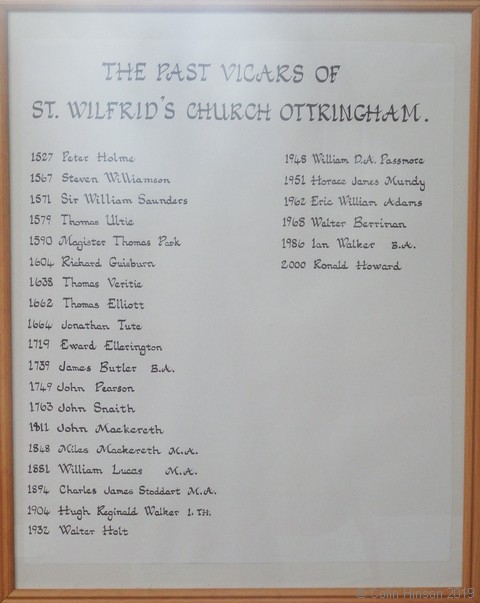 THE PAST VICARS OF
ST. WILFRID'S CHURCH OTTRINGHAM.
1527 Peter Holme
1567 Steven Williamson
1571 Sir William Saunders
1579 Thomas Ultie
1590 Magister Thomas Park
1604 Richard Guisburn
1638 Thomas Veritie
1662 Thomas Elliott
1664 Jonathan Tute
1719 Eward Ellerington
1739 James Butler B.A.
1749 John Pearson
1763 John Snaith
1811 John Mackereth
1848 Miles Mackereth M.A.
1881 William Lucas M.A.
1894 Charles James Stoddart M.A.
1904 Hugh Reginald Walker L.TH.
1932 Walter Holt
1948 William D.A. Passmore
1951 Horace James Mundy
1962 Eric William Adams
1968 Walter Berriman
1986 Ian Walker B.A.
2000 Ronald Howard
© Colin Hinson 2019